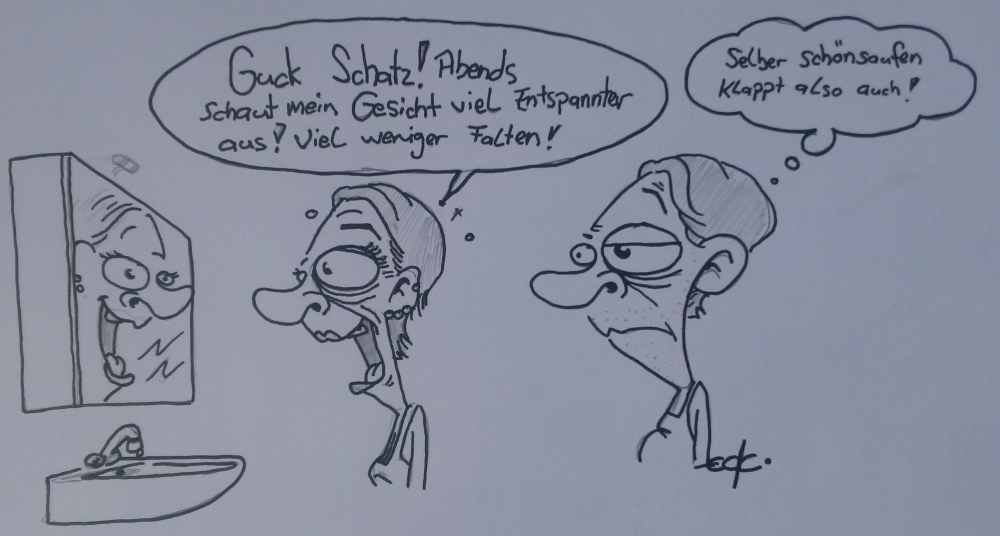 Guck Schatz! Abends
schaut mein Gesicht viel Entspannter
aus! Viel weniger Falten!
Selber schönsaufen
klappt also auch!